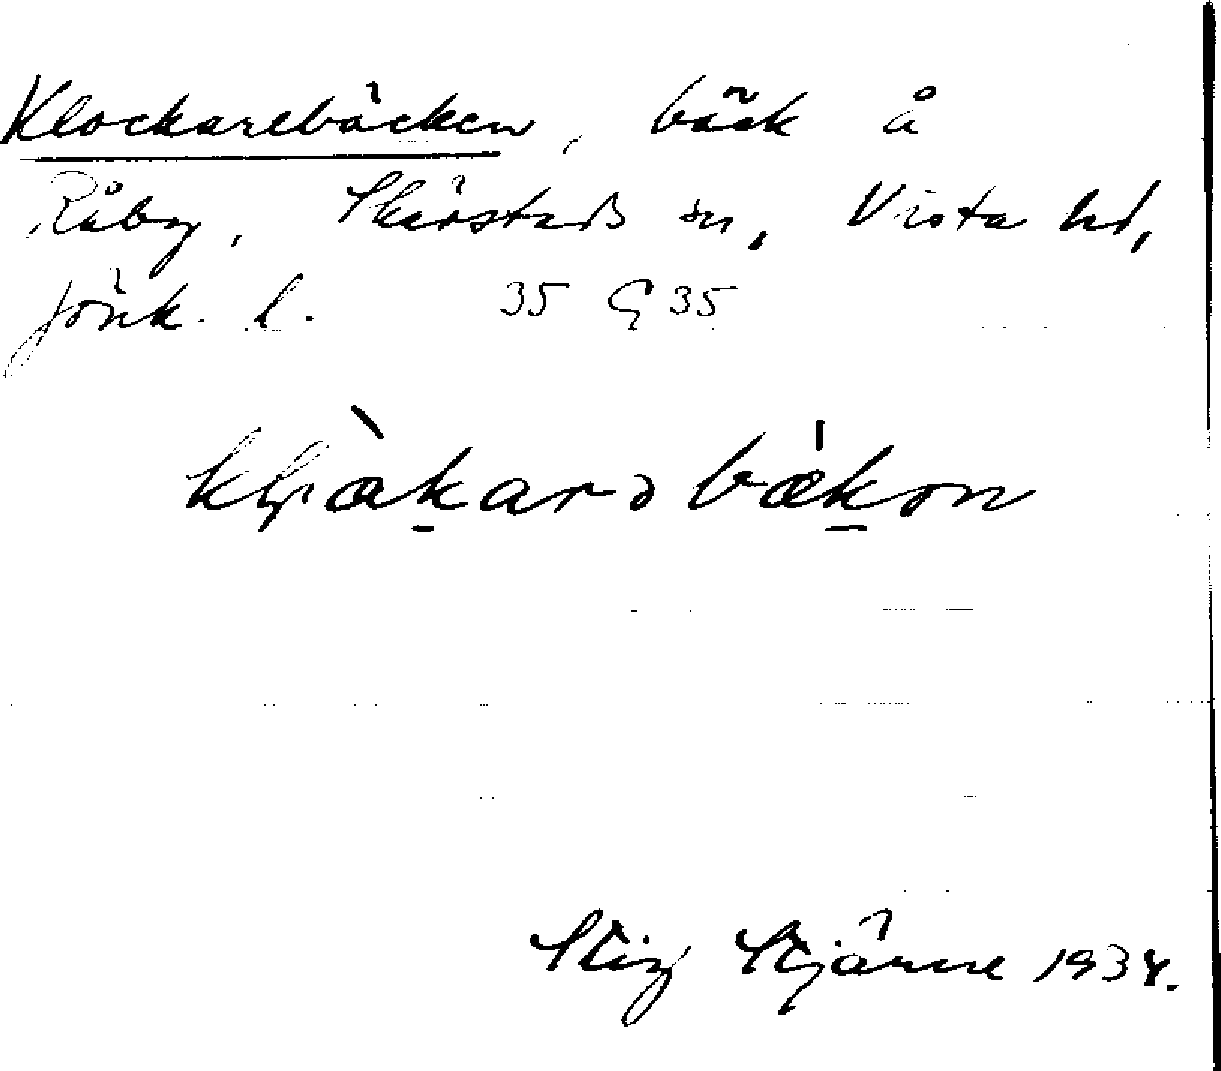 Klockarebäcken, bäck å
Råby, Skärstads sn, Vista hd,
Jönk. l. 35 G 35
Stig Stjärne 1934.